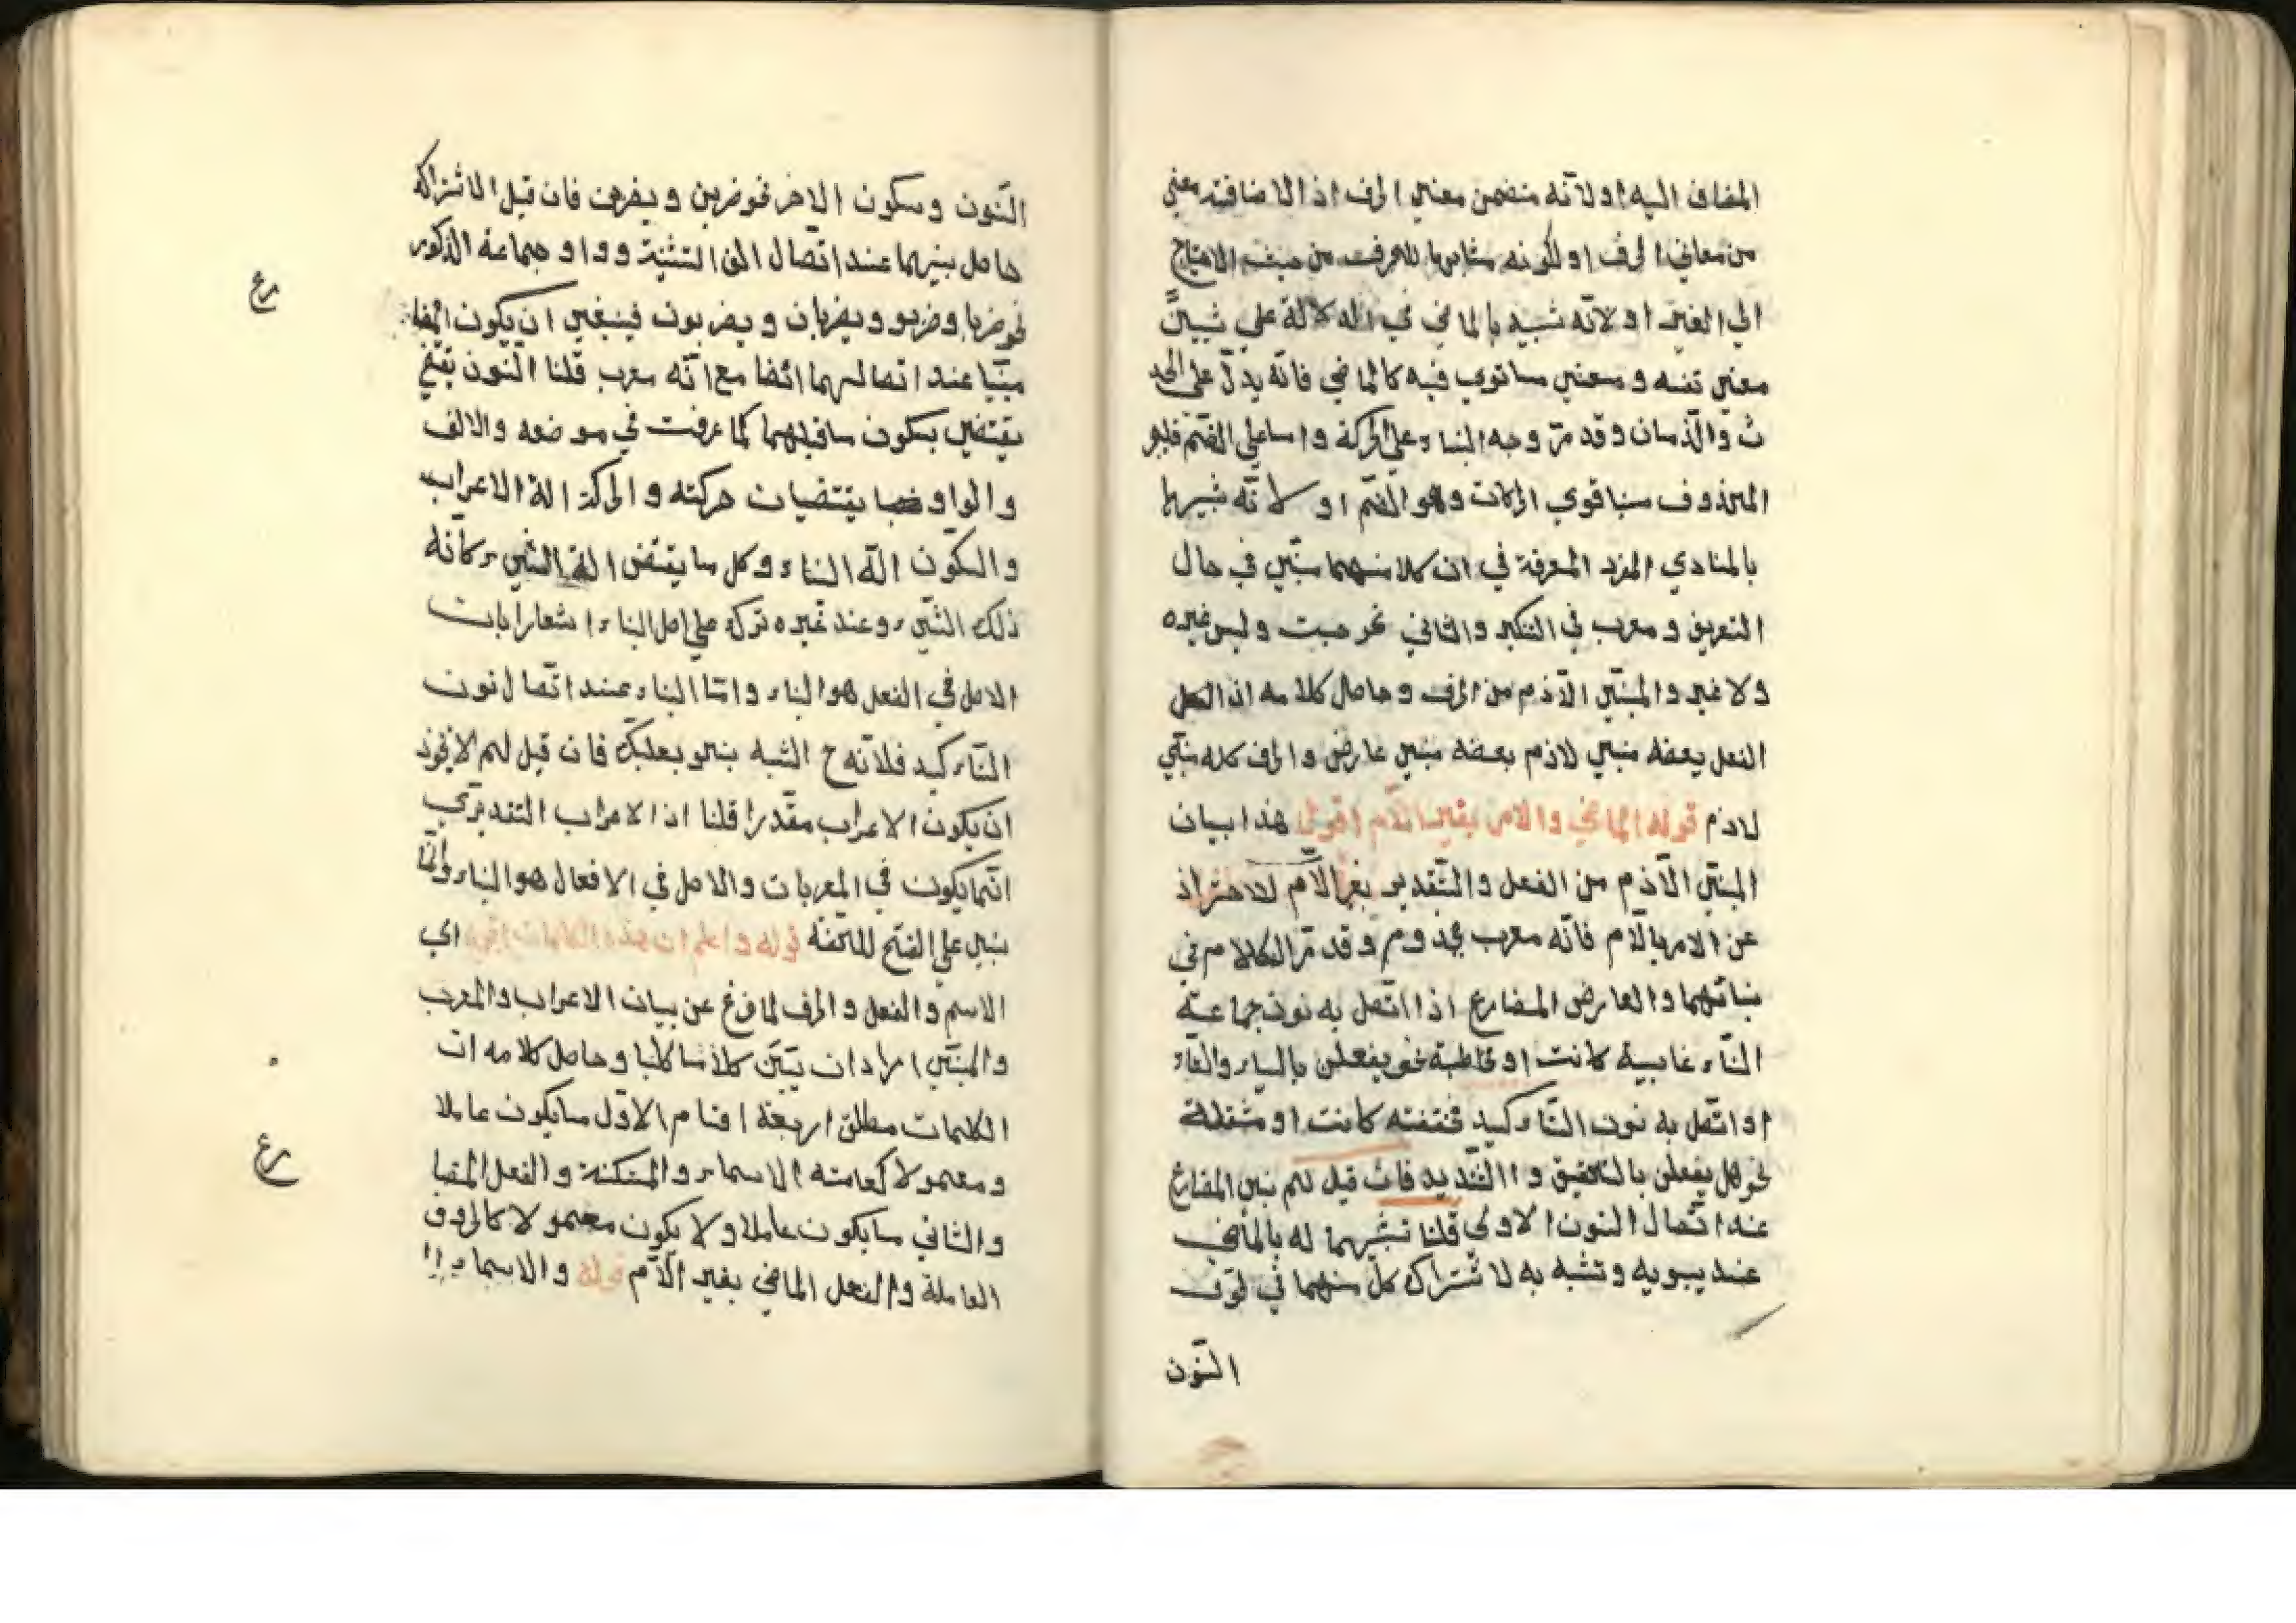 المضاف اليه او لانه متضمن معني الحرف اذ الاضافة معني
من معاني الحرف او لكونه مشابها للحرف من حيث الاحتياج
الي الغير او لانه شبيه بالماضي في الدلالة علي شيئين
معني نفسه و معني ما نوي فيه كالماضي فانه يدل علي الحد
ث والزمان وقد مر وجه البناء علي الحركة واما علي الضم فلجبر
المحذوف منا قوي الحركات وهو الضم او لانه شبيها
بالمنادي المفرد المعرفة في ان كلا منهما مبني في حال
التعريف و معرب في التنكير والثاني نحو حيث وليس غيره
ولا غير والمبني اللازم من الحرف وحاصل كلامه ان الكل
الفعل بعضه مبني لازم بعضه مبني عارض والحرف كله مبني
لازم قوله الماضي والامر بغير اللام اقول هذا بيان
المبني اللازم من الفعل والتقدير بغير اللام للاحتراز
عن الامر باللام فانه معرب مجزوم وقد مر الكلام في
بنائهما والعارض المضارع اذا اتصل به نون جماعة
النساء غايبة كانت او مخاطبة نحو يفعلن بالياء والتاء
او اتصل به نون التاكيد مخففة كانت او مثقلة
نحو هل يفعلن بالتخفيف و االتشديد فان قيل لم بني المضارع
عند اتصال النون الاولي قلنا تشبيهما له بالماضي
عند سيبويه وتشبه به لاشتراك كل منهما في لحوق
النون
النون وسكون الاخر نحو ضربن و يضربن فان قيل الاشتراك
حاصل بينهما عند اتصال الف التثنية وواو جماعة الذكور
نحو ضربا وضربو ويضربان و يضربون فينبغي ان يكون المضا
مبنيا عند اتصالهما ايضا مع انه معرب قلنا النون
يقتضي بسكون ماقبلهما كما عرفت في موضعه والالف
والواو يقتضيان حركته والحركة الة الاعراب
والسكون الة البناء وكل ما يقتض الة الشيء كانه
ذلك الشيء وعند غيره تركه علي اصل البناء اشعارا بان
الاصل في الفعل هو البناء واما البناء عند اتصال نون
التاكيد فلانه ح الشبه بنحو بعلبك فان قيل لم لا يجوز
ان يكون الاعراب مقدرا قلنا اذ الاعراب التقديري
انما يكون في المعربات والاصل في الافعال هو البناء وانما
بني علي الفتح للخفة قوله واعلم ان هذه الكلمات اقول اي
الاسم والفعل والحرف لما فرغ عن بيان الاعراب والمعرب
والمبني اراد ان يبين كلاما كليا وحاصل كلامه ان
الكلمات مطلق اربعة اقسام الاول ما يكون عاملا
ومعمولا كعامته الاسماء والمتمكنة والفعل المضا
والثاني ما يكون عاملا ولا يكون معمولا كالحروف
العاملة والفعل الماضي بغير اللام قوله والاسماء